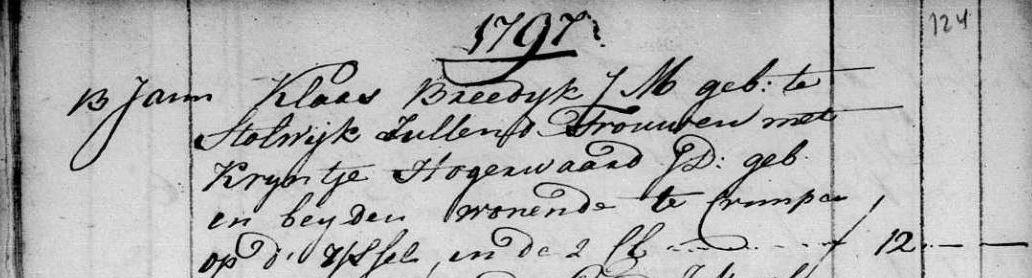 1797
124
13 Jann Klaas Breedyk J M geb: te
Stolwijk Zullend Trouwen met
Kryntje Hogerwaard JD: geb
en beyden wonende te Crimpen
op d' YsseL, in de 2 Cl 12